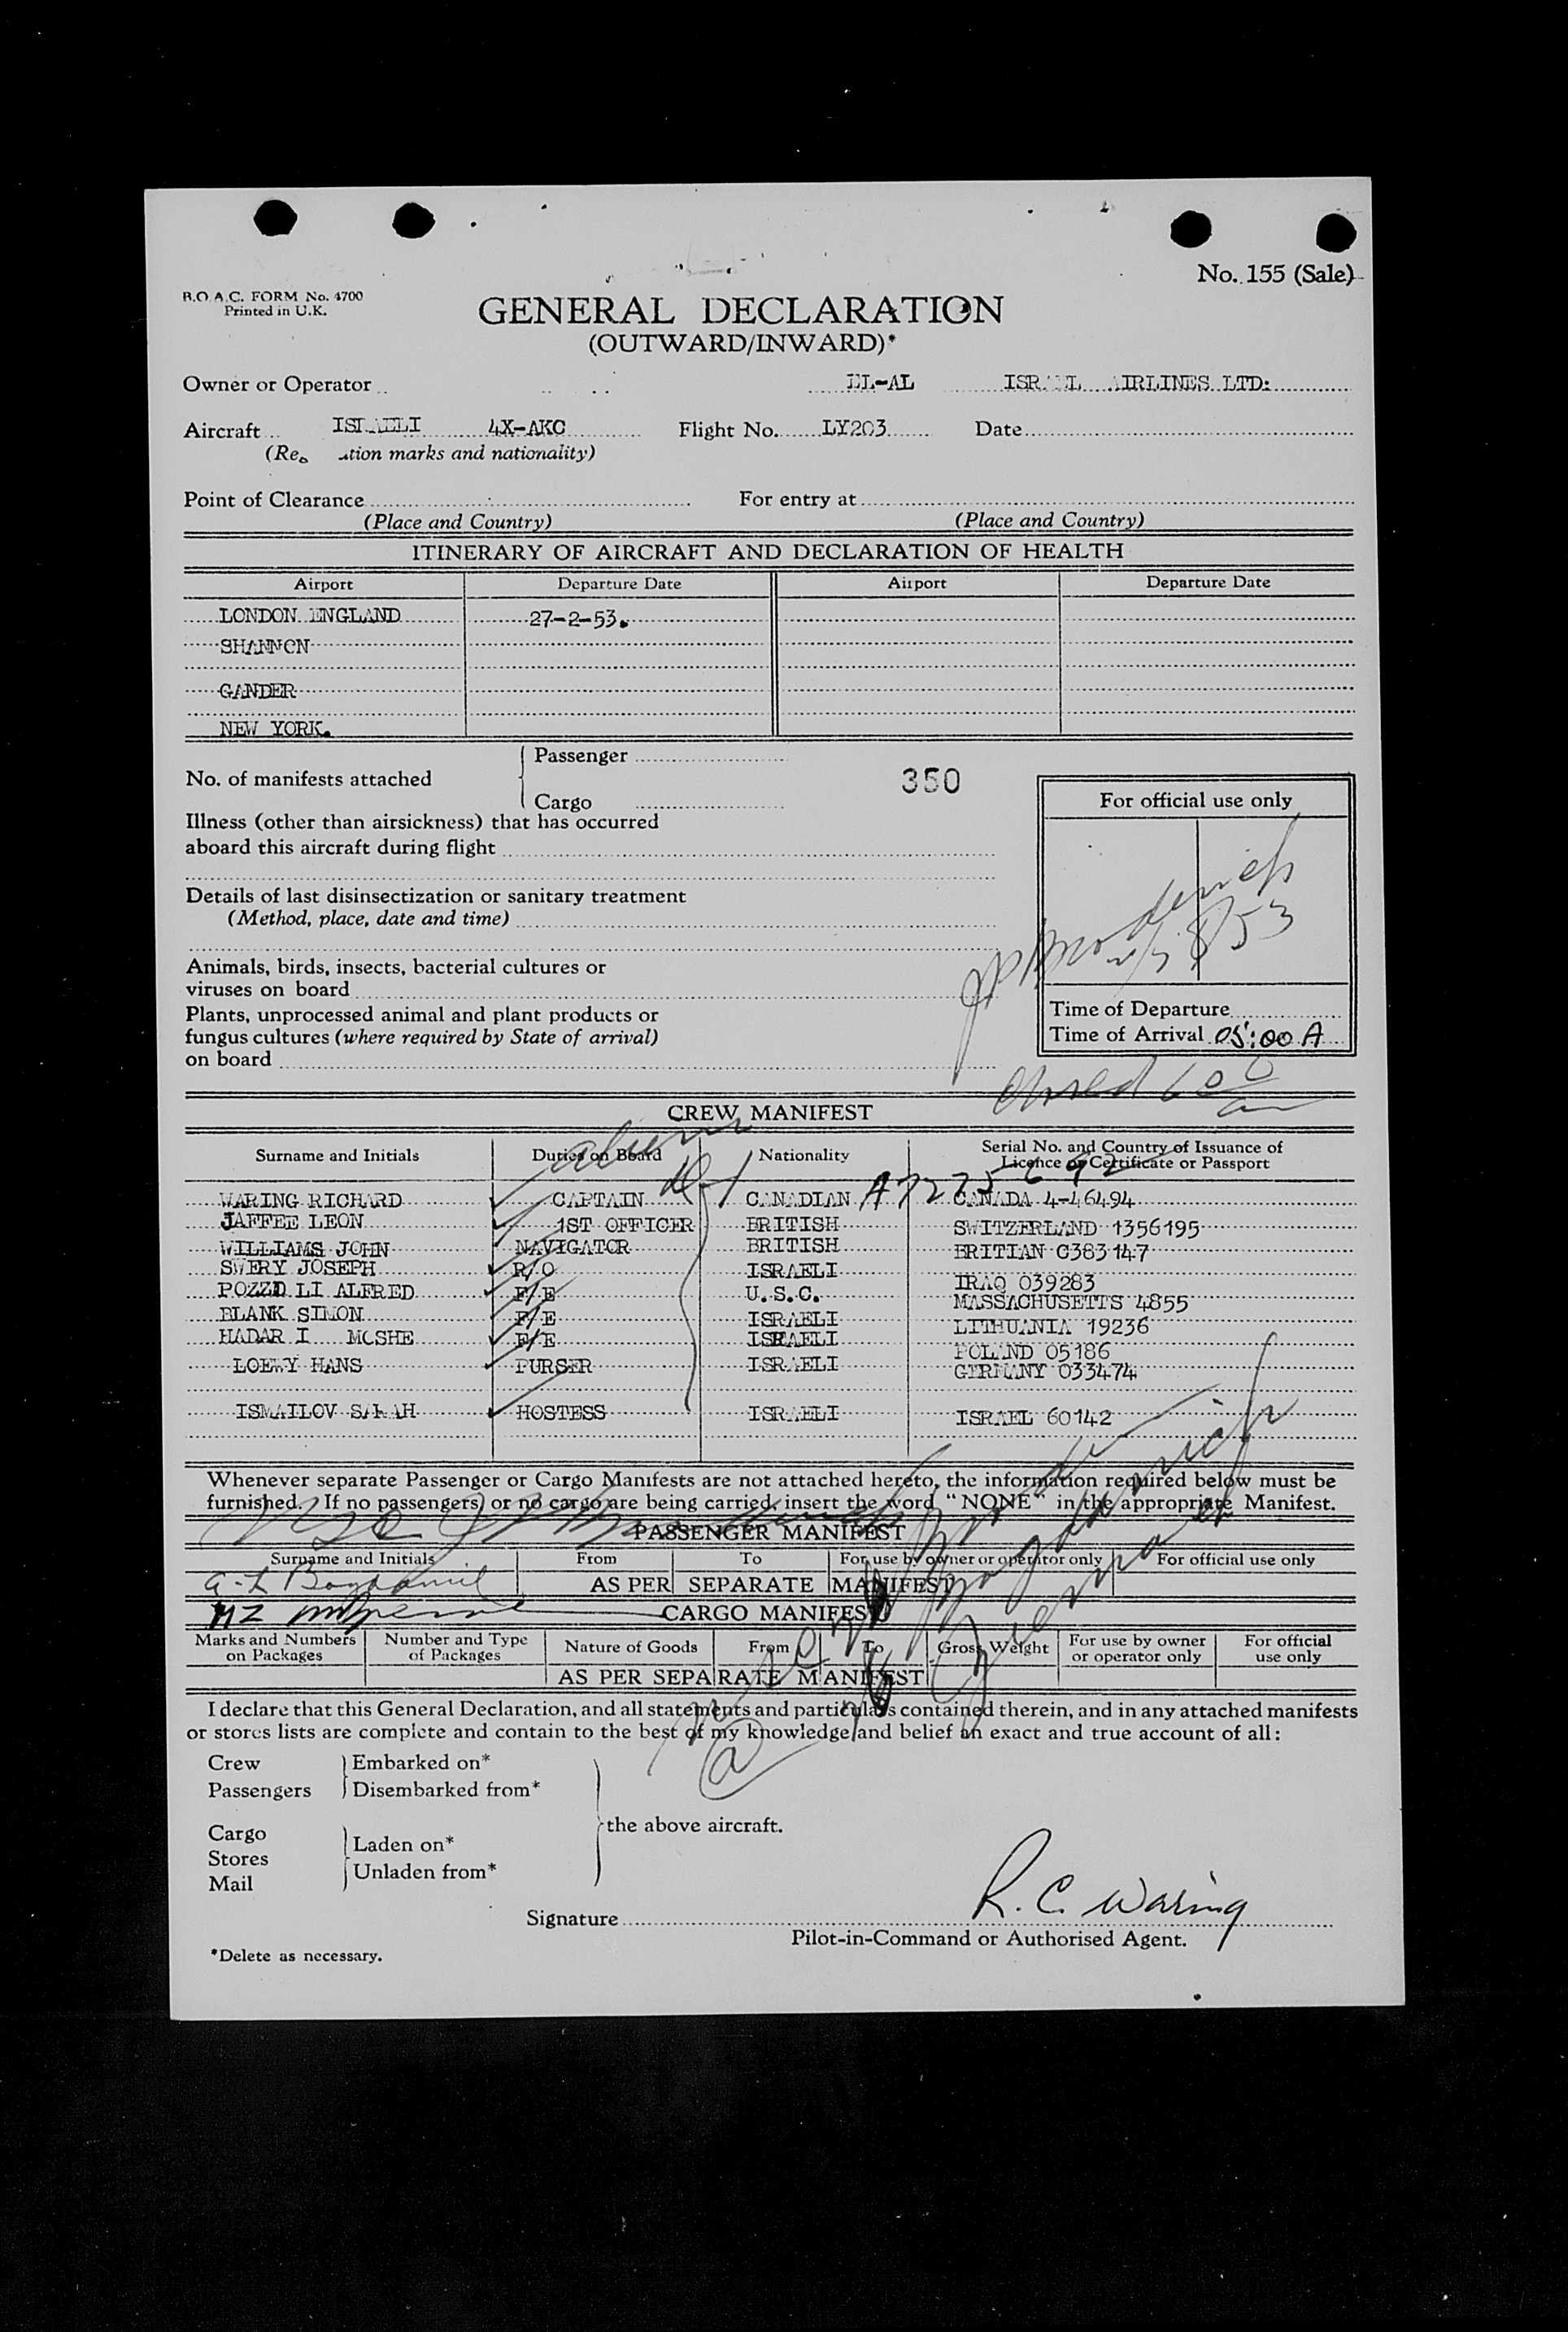 No. 155 (Sale)
B.O.A.C. FORM No. 4700
Printed in U.K.
GENERAL DECLARATION
(OUTWARD/INWARD)*
Owner or Operator EL-AL ISRAEL AIRLINES LTD:
Aircraft ISRAELI 4X-AKC Flight No. LY203 Date
marks and nationality)
Point of Clearance For entry at
(Place and Country) (Place and Country)
ITINERARY OF AIRCRAFT AND DECLARATION OF HEALTH
Airport Departure Date Airport Departure Date
LONDON ENGLAND 27-2-53.
SHANNON
GANDER
NEW YORK.
Passenger
No. of manifests attached 350
Cargo
For official use only
Illness (other than airsickness) that has occurred
aboard this aircraft during flight
Details of last disinsectization or sanitary treatment
(Method, place, date and time)
Animals, birds, insects, bacterial cultures or
viruses on board
Plants, unprocessed animal and plant products or
fungus cultures (where required by State of arrival)
on board
Time of Departure
Time of Arrival 05:00 A
CREW MANIFEST
Surname and Initials Duties on Board Nationality Serial No. and Country of Issuance of
Licence or Certificate or Passport
WARING RICHARD CAPTAIN CANADIAN CANADA 4-46494
JAFFEE LEON 1ST OFFICER BRITISH SWITZERLAND 1356195
WILLIAMS JOHN NAVIGATOR BRITISH BRITIAN C383147
SWERY JOSEPH R/O ISRAELI IRAQ 039283
POZZD LI ALFRED F/E U.S.C. MASSACHUSETTS 4855
BLANK SIMON F/E ISRAELI LITHUANIA 19236
HADAR I MOSHE F/E ISRAELI POLAND 05186
LOEWY HANS PURSER ISRAELI GERMANY 033474
ISMAILOV SARAH HOSTESS ISRAELI ISRAEL 60142
Whenever separate Passenger or Cargo Manifests are not attached hereto, the information required below must be
furnished. If no passengers or no cargo are being carried, insert the word "NONE" in the appropriate Manifest.
PASSENGER MANIFEST
Surname and Initials From To For use by owner or operator only For official use only
AS PER SEPARATE MANIFEST
CARGO MANIFEST
Marks and Numbers on Packages Number and Type of Packages Nature of Goods From To Gross Weight For use by owner or operator only For official use only
AS PER SEPARATE MANIFEST
I declare that this General Declaration, and all statements and particulars contained therein, and in any attached manifests
or stores lists are complete and contain to the best of my knowledge and belief an exact and true account of all:
Crew Embarked on*
Passengers Disembarked from*
the above aircraft.
Cargo
Laden on*
Stores
Unladen from*
Mail
R. C. Waring
Signature
Pilot-in-Command or Authorised Agent.
*Delete as necessary.